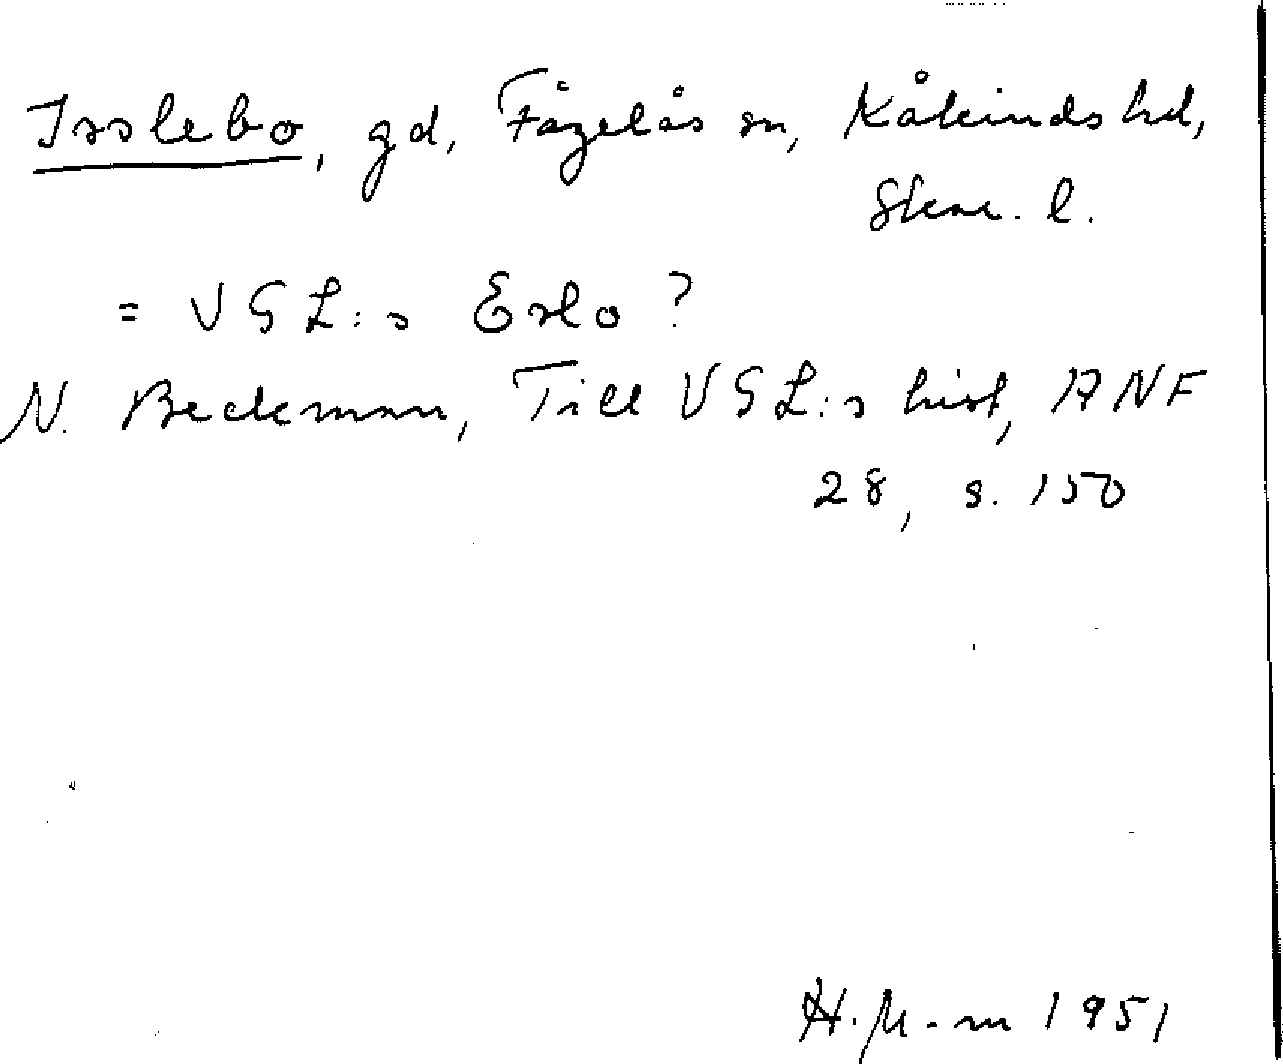 Isslebo, gd, Fågelås sn, Kåkinds hd,
Skar. l.
= VGL:s Eslo ?
N. Beckman, Till VGL:s hist, ANF
28, s. 150
H. M-m 1951